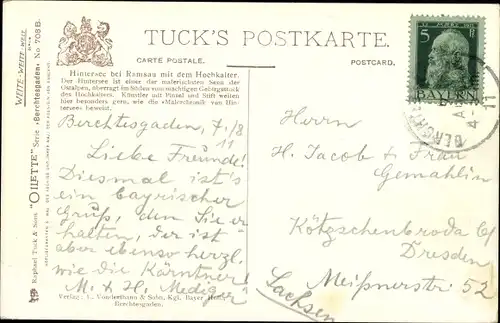 TUCK'S POSTKARTE.
CARTE POSTALE.
POSTCARD.
Raphael Tuck & Sons' "OILETTE" Serie »Berchtesgaden« No 708 B.
WEITE-WEITE-WELT
Hintersee bei Ramsau mit dem Hochkalter.
Der Hintersee ist einer der malerischsten Seen der
Ostalpen, überragt im Süden vom mächtigen Gebirgsstock
des Hochkalters. Künstler mit Pinsel und Stift weilen
hier besonders gern, wie die »Malerchemik von Hin-
tersee« beweist.
Berchtesgaden, 7/8
11
Liebe Freunde!
Diesmal ist's
ein bayrischer
Gruß, den Sie er-
halten, der ist
aber ebenso herzl.
wie die Kärntner!
M. & H. Mediger
Verlag: L. Vonderthann & Sohn, Kgl. Bayer. Hofl.
Berchtesgaden.
5 5
BAYERN
Herrn
H. Jacob & Frau
Gemahlin
Kötzschenbroda b/
Dresden
Meißnerstr 52
Sachsen